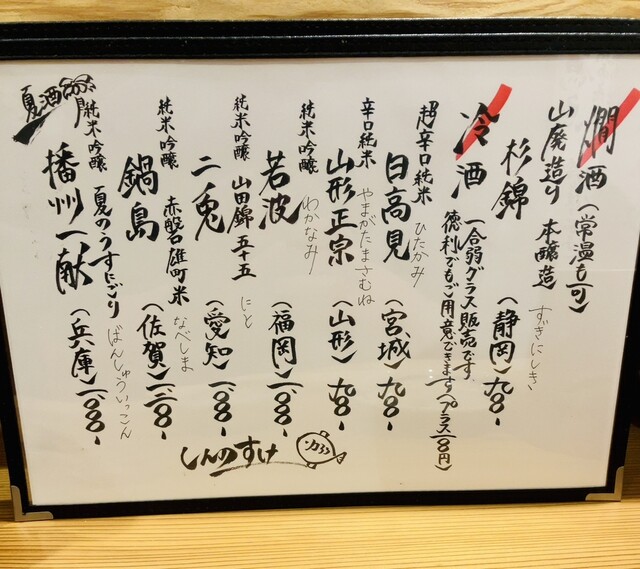 燗酒(常温も可)
山廃造り 本醸造
杉錦 すぎにしき (静岡)九〇〇-
冷酒 一合弱グラス販売です
徳利でもご用意できます(プラス一〇〇円)
超辛口純米
日高見 ひたかみ (宮城)九〇〇-
辛口純米
山形正宗 やまがたまさむね (山形)九〇〇-
純米吟醸
若波 わかなみ (福岡)一、〇〇〇-
純米吟醸 山田錦 五十五
二兎 にと (愛知)一、〇〇〇-
純米吟醸 赤磐雄町米
鍋島 なべしま (佐賀)一、二〇〇-
夏酒
純米吟醸 夏のうすにごり
播州一献 ばんしゅういっこん (兵庫)一、〇〇〇-
しんのすけ